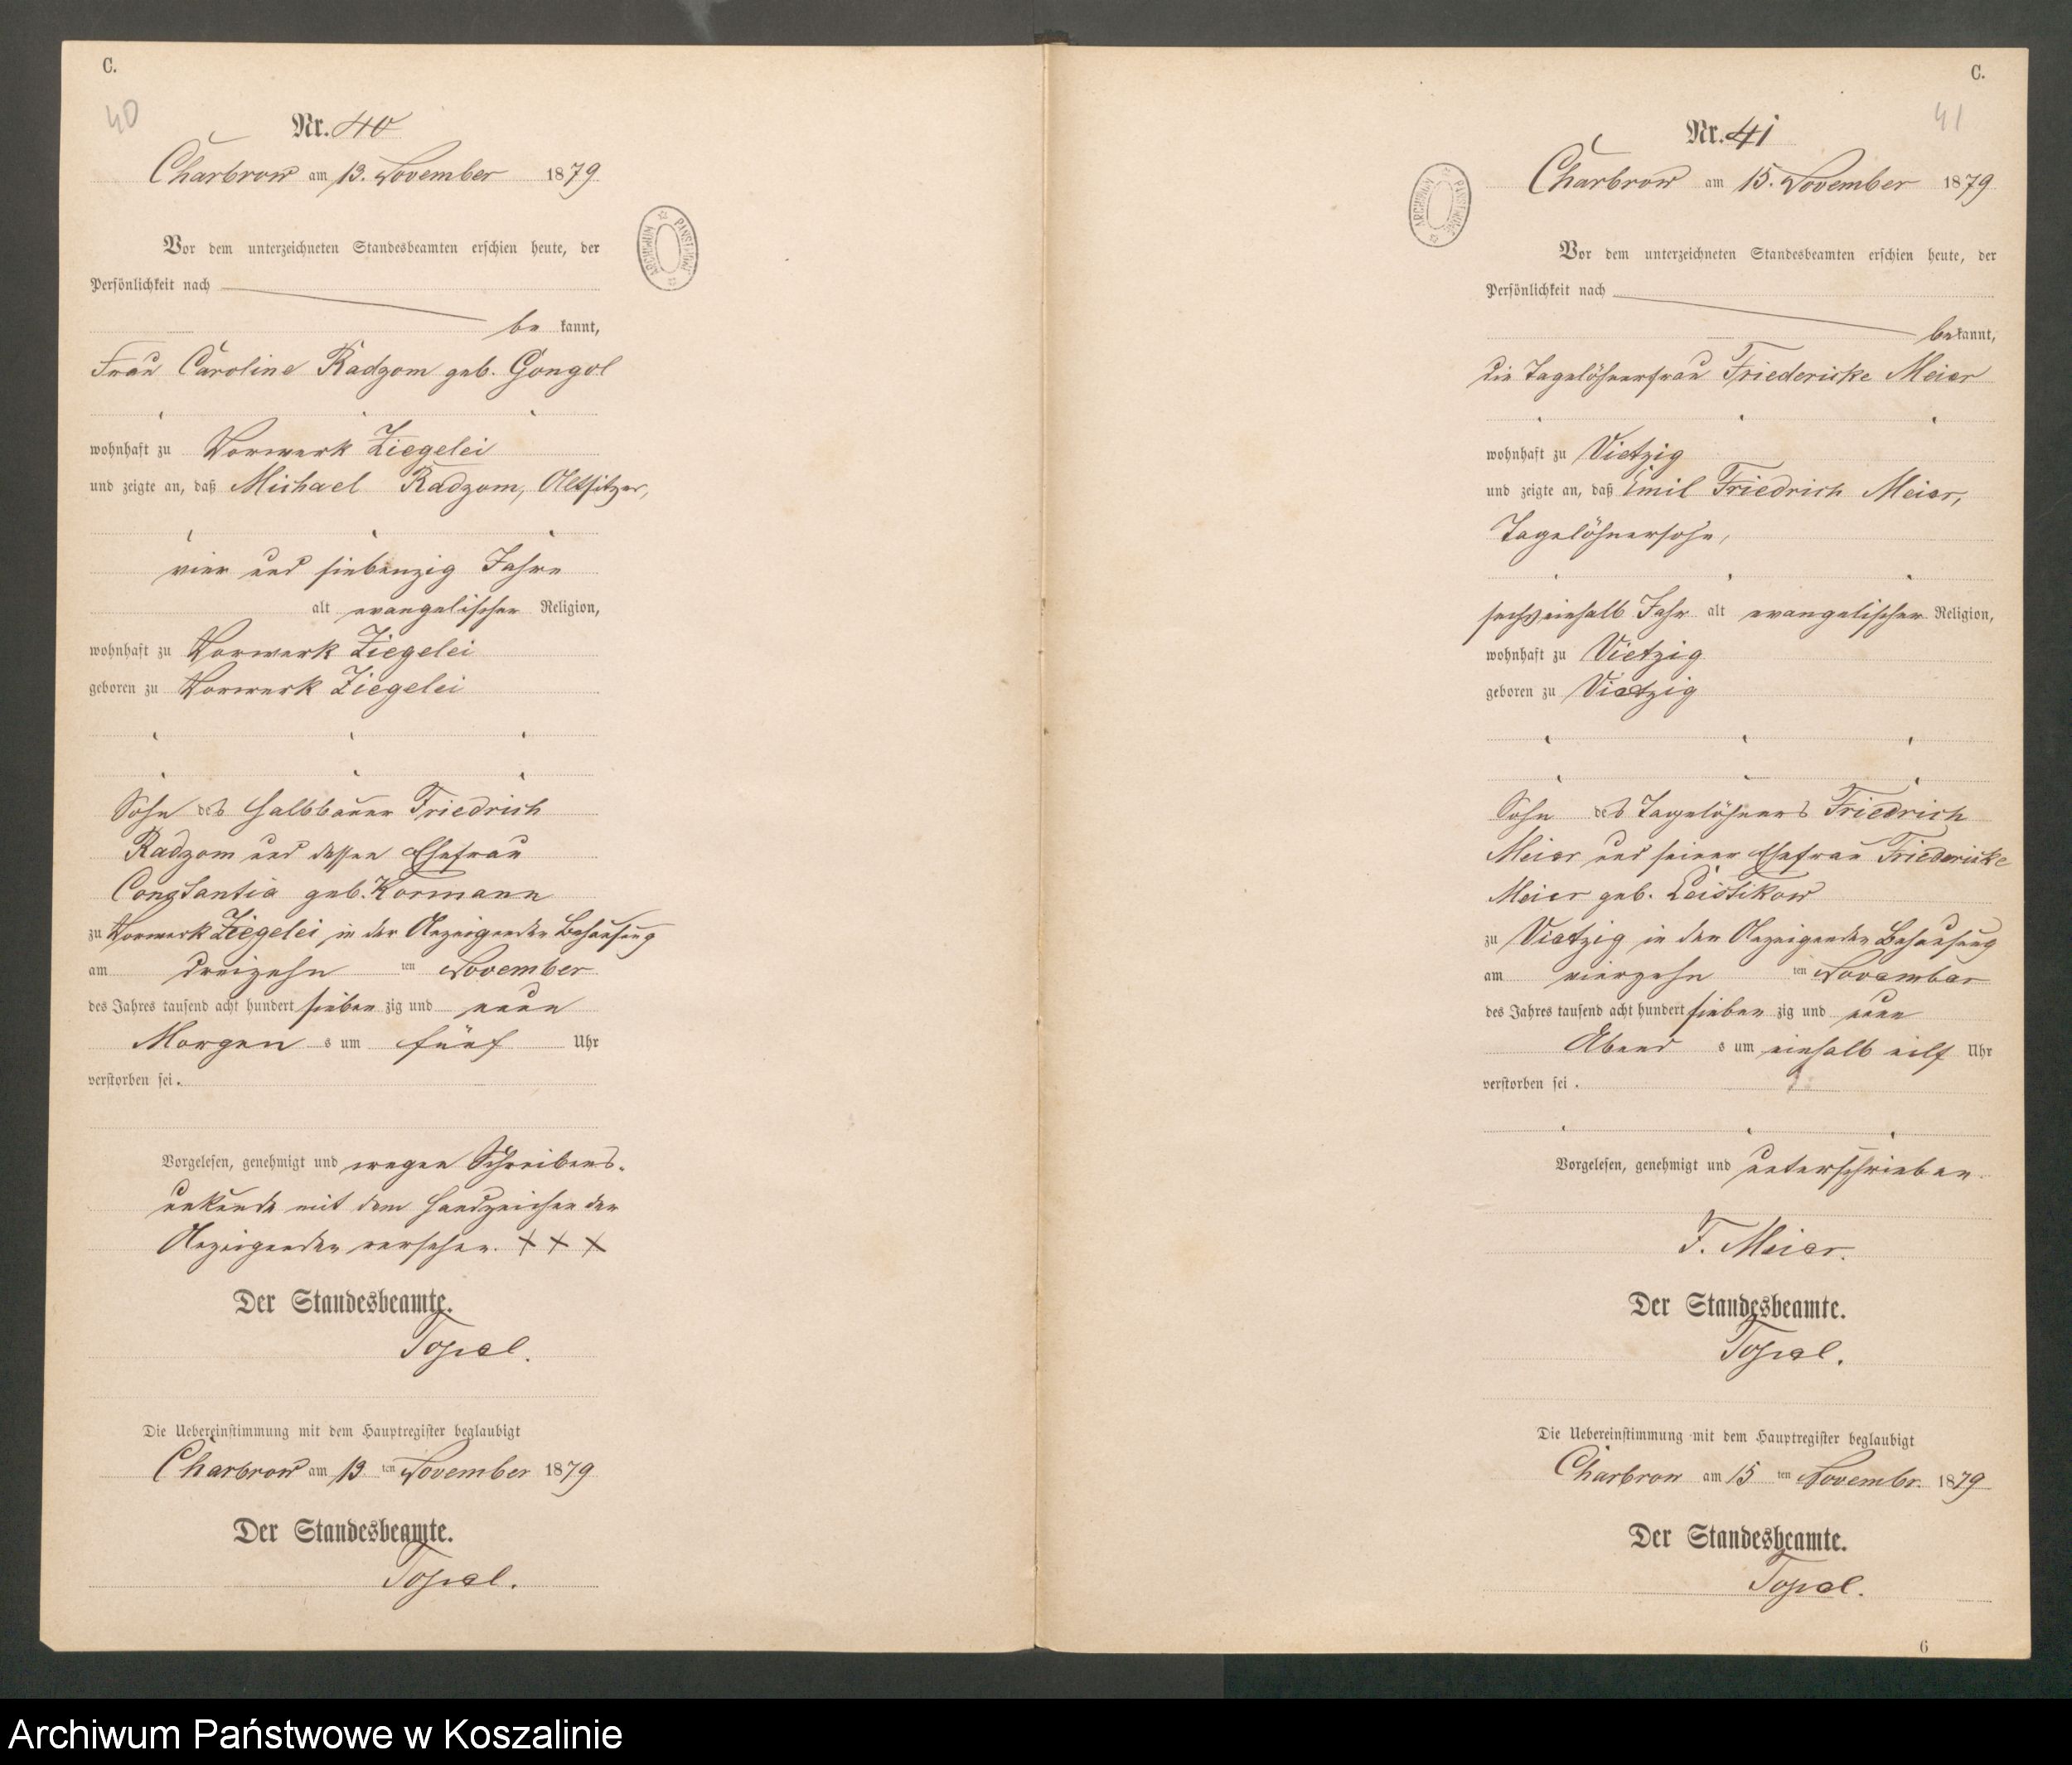 C.
40
Nr. 40
Charbrow am 13. November 1879
Vor dem unterzeichneten Standesbeamten erschien heute, der
Persönlichkeit nach
be kannt,
Frau Caroline Radzom geb. Gongol
wohnhaft zu Vorwerk Ziegelei
und zeigte an, daß Michael Radzom, Altsitzer,
vier und siebenzig Jahre
alt evangelischer Religion,
wohnhaft zu Vorwerk Ziegelei
geboren zu Vorwerk Ziegelei
Sohn des Halbbauer Friedrich
Radzom und dessen Ehefrau
Constantia geb. Kormann
zu Vorwerk Ziegelei in der Anzeigenden Behausung
am dreizehn ten November
des Jahres tausend acht hundert sieben zig und neun
Morgen s um fünf Uhr
verstorben sei.
Vorgelesen, genehmigt und wegen Schreibens-
unkunde mit dem Handzeichen der
Anzeigenden versehen. + + +
Der Standesbeamte.
Die Uebereinstimmung mit dem Hauptregister beglaubigt
Charbrow am 13 ten November 1879
Der Standesbeamte.
C.
41
Nr. 41
ARCHIWUM PAŃSTWOWE
Charbrow am 15. November 1879
Vor dem unterzeichneten Standesbeamten erschien heute, der
Persönlichkeit nach
bekannt,
die Tagelöhnerfrau Friedericke Meier
wohnhaft zu Vietzig
und zeigte an, daß Emil Friedrich Meier,
Tagelöhnersohn,
sechseinhalb Jahr alt evangelischer Religion,
wohnhaft zu Vietzig
geboren zu Vietzig
Sohn des Tagelöhners Friedrich
Meier und seiner Ehefrau Friedericke
Meier geb. Leistikow
zu Vietzig in der Anzeigenden Behausung
am vierzehn ten November
des Jahres tausend acht hundert sieben zig und neun
Abend s um einhalb eilf Uhr
verstorben sei.
Vorgelesen, genehmigt und unterschrieben.
F. Meier.
Der Standesbeamte.
Die Uebereinstimmung mit dem Hauptregister beglaubigt
Charbrow am 15 ten Novembr. 1879
Der Standesbeamte.
6
Archiwum Państwowe w Koszalinie